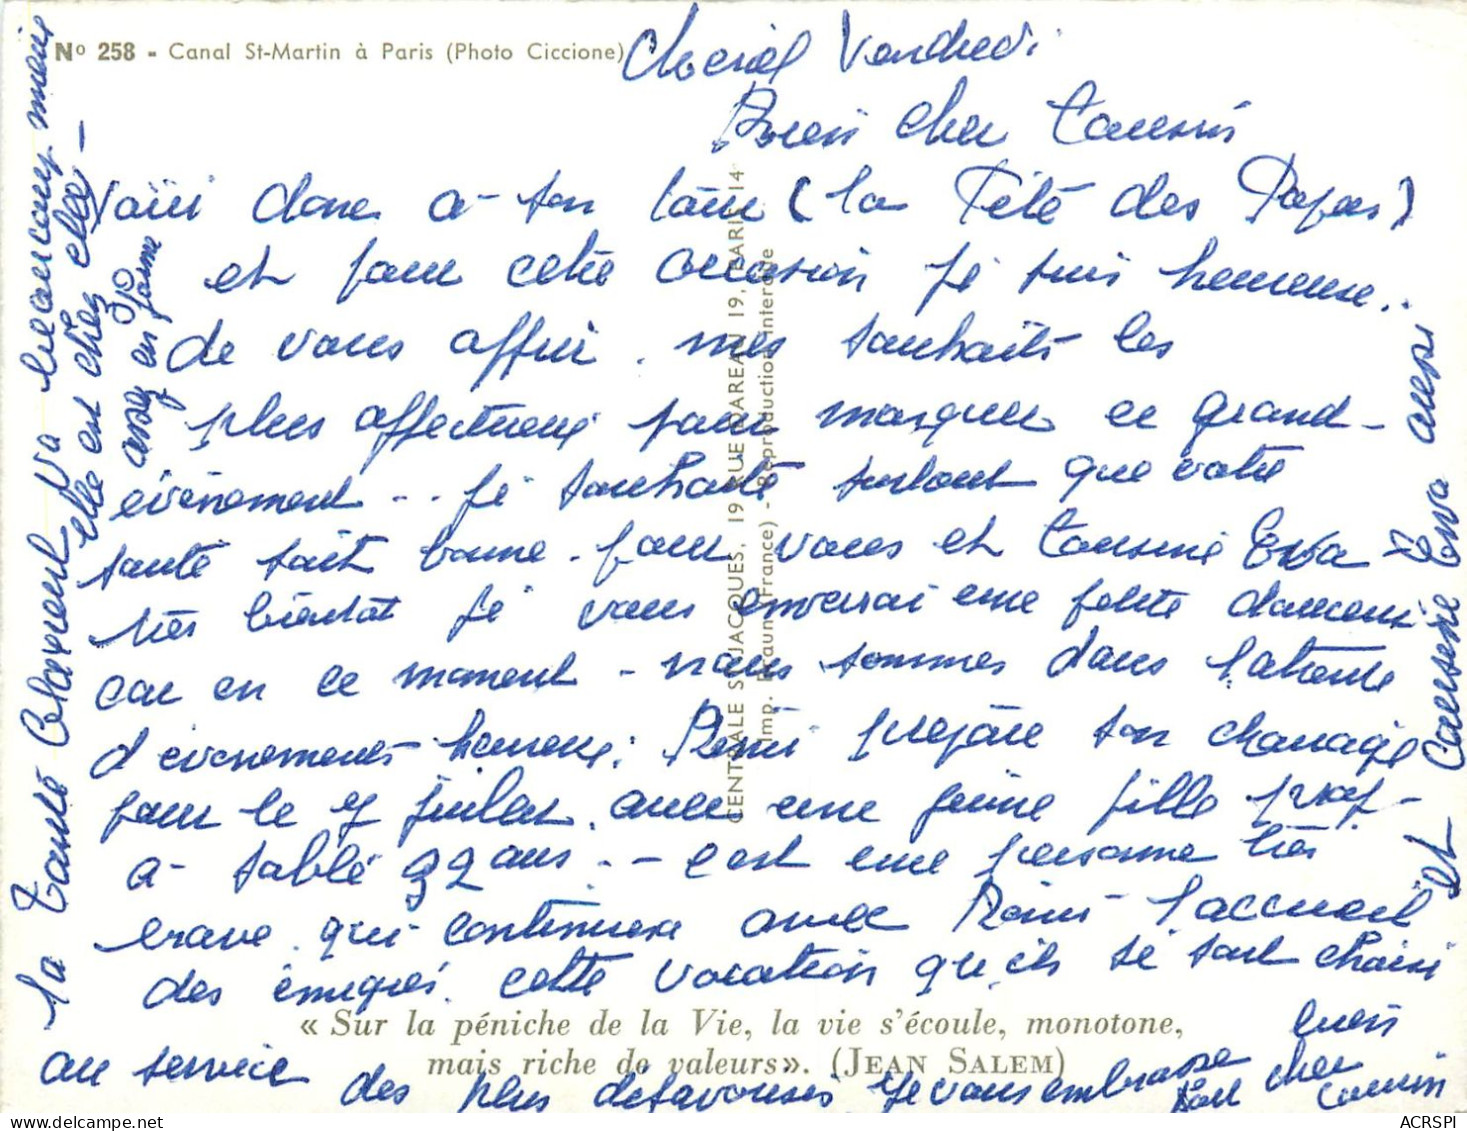 Nº 258 - Canal St-Martin à Paris (Photo Ciccione)
Vendredi
Bien cher Cousin
Voici donc à ton tour (la Fête des Papas)
et pour cette occasion je suis heureuse..
de vous offrir mes souhaits les
plus affectueux pour marquer ce grand-
évènement .. je souhaite surtout que votre
santé soit bonne - pour vous et Cousine Eva -
très bientôt je vous enverrai une petite
car en ce moment - nous sommes dans l'attente
d'évènements heureux: Rémi prépare son mariage
pour le 7 juillet. avec une jeune fille prof-
à Sablé 32 ans -- c'est une personne très
brave. qui continuera avec Rémi l'accueil
des émigrés. cette vocation qu'ils se sont choisi
au service des plus défavorisés. Je vous embrasse
bien cher Cousin
et Cousine Eva aussi
la Tante Clavreul va beaucoup mieux
elle est chez elle -
assez en forme
CENTRALE ST-JACQUES, 19 RUE DAREAU 19, PARIS 14
Imp. Braun (France) - Reproduction interdite
« Sur la péniche de la Vie, la vie s'écoule, monotone,
mais riche de valeurs». (JEAN SALEM)
ACRSPI